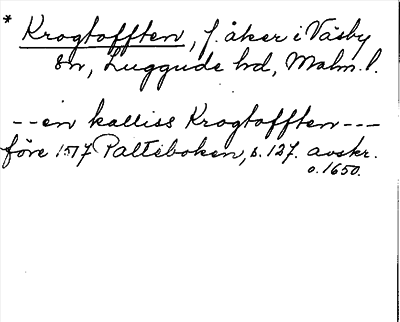 * Krogtofften, f. åker i Väsby
sn, Luggude hd, Malm. l.
-- en kalliss Krogtofften ---
före 1517 Palteboken, s. 127. avskr.
o. 1650.